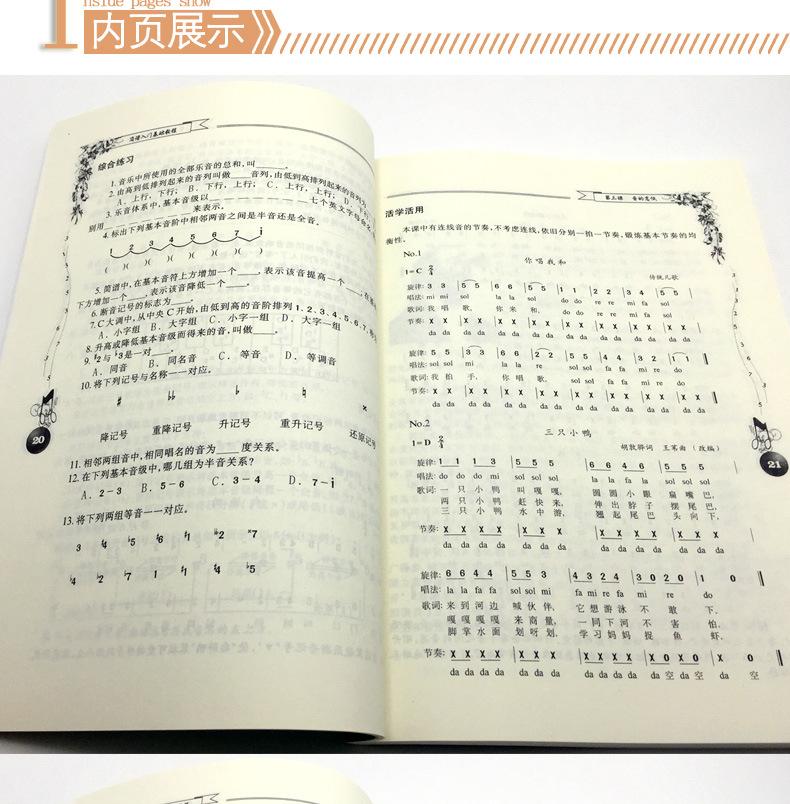 nside pages show
1 内页展示
简谱入门基础教程
综合练习
1. 音乐中所使用的全部乐音的总和,叫____。
2. 由高到低排列起来的音列叫做____音列,由低到高排列起来的音列为
A. 上行,下行; B. 下行,上行; C. 上行,上行; D. 下行
3. 乐音体系中,基本音级以____ ____七个英文字母命名,
别用____来表示。
4. 标出下列基本音阶中相邻两音之间是半音还是全音.
1 2 3 4 5 6 7 i
( )( )( )( )( )( )( )
5. 简谱中,在基本音符上方增加一个____,表示该音提高一个____,在基
下方增加一个____,表示该音降低一个____。
6. 断音记号的标志为____。
7. C大调中,从中央C开始,由低到高的音阶排列1、2、3、4、5、6、7,
A. 小字组 B. 大字组 C. 小字一组 D. 大字一组
8. 升高或降低基本音级而得来的音,叫做____。
9. ♯2与♭3是一对____。
A. 同音 B. 同名音 C. 等音 D. 等调音
10. 将下列记号与名称一一对应。
♯ ♭♭ ♭ ♮ ×
降记号 重降记号 升记号 重升记号 还原记号
11. 相邻两组音中,相同唱名的音为____度关系。
12. 在下列基本音级中,哪几组为半音关系?
A. 2－3 B. 5－6 C. 3－4 D. 7－i
13. 将下列两组等音一一对应。
20
第三课 音的宽张
活学活用
本课中有连线音的节奏,不考虑连线,依旧分别一拍一节奏,锻炼基本节奏的均
衡性。
No.1
你唱我和
1=C 2/4
传统儿歌
旋律: 3 3 | 5 5 | 6 6 | 5 | 1 1 | 2 2 | 3 4 | 5 5 |
唱法: mi mi sol la la sol do do re re mi fa sol
歌词: 我 唱 歌, 你 来 和, do do re re mi fa sol
节奏: X X | X X | X X | X X | X X | X X | X X | X X |
da da da da da da da da da da da da da da da da
旋律: 5 5 | 3 3 | 6 6 | 2 2 | 5 5 | 4 4 | 3 2 | 1 1 ‖
唱法: sol sol mi la la re sol sol fa fa mi re do
歌词: 我 拍 手, 你 唱 歌, sol sol fa fa mi re do
节奏: X X | X X | X X | X X | X X | X X | X X | X X ‖
da da da da da da da da da da da da da da da da
No.2
三只小鸭
1=D 2/4
胡敦骅词 王寯曲 (改编)
旋律: 1 1 1 3 | 5 5 5 | 6 6 4 6 | 5 5 5 |
唱法: do do do mi sol sol sol la la fa la sol sol sol
歌词: 一 只 小 鸭 叫 嘎 嘎, 圆 圆 小 眼 扁 嘴 巴,
两 只 小 鸭 赶 快 来, 伸 出 脖 子 摆 尾 巴,
三 只 小 鸭 水 中 游, 翘 起 尾 巴 头 向 下,
节奏: X X X X | X X X X | X X X X | X X X X |
da da da da da da da da da da da da da da da da
旋律: 6 6 4 4 | 5 5 3 | 4 3 2 4 | 3 0 2 0 | 1 0 ‖
唱法: la la fa fa sol sol mi fa mi re fa mi re do
歌词: 来 到 河 边 喊 伙 伴, 它 想 游 泳 不 敢 下.
嘎 嘎 嘎 嘎 来 商 量, 一 同 下 河 不 害 怕.
脚 掌 水 面 划 呀 划, 学 习 妈 妈 捉 鱼 虾.
节奏: X X X X | X X X X | X X X X | X 0 X 0 | X 0 ‖
da da da da da da da da da da da da da 空 da 空 da 空
21